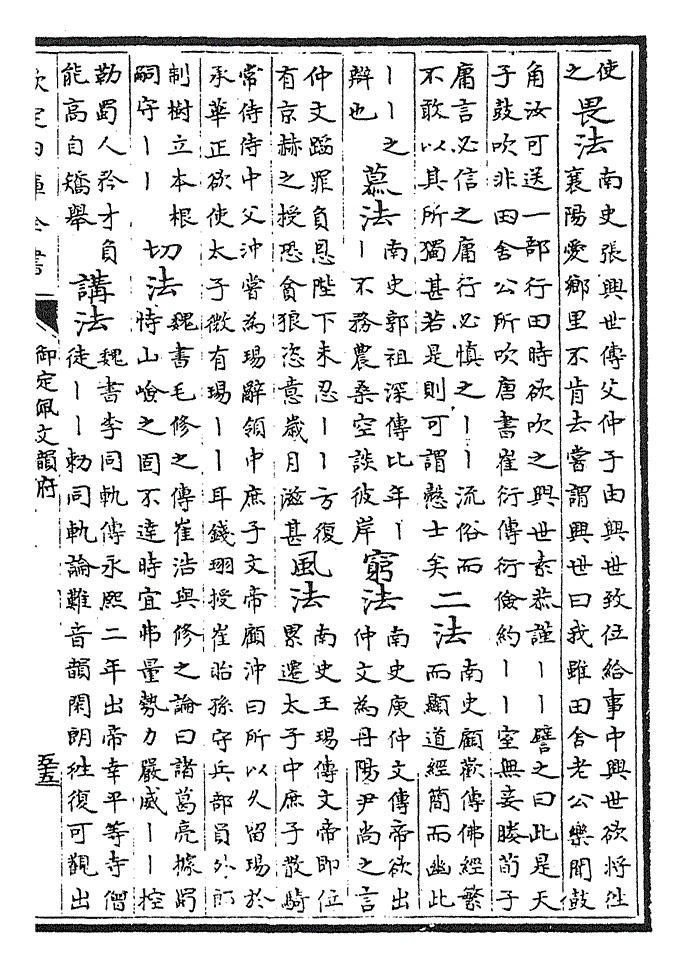 使之
畏法
南史張興世傳父仲子由興世致位給事中興世欲將往
襄陽愛鄉里不肯去嘗謂興世曰我雖田舍老公樂聞鼓
角汝可送一部行田時欲吹之興世素恭謹丨丨譬之曰此是天
子鼓吹非田舍公所吹唐書崔衍傳衍儉約丨丨室無妾媵荀子
庸言必信之庸行必慎之丨丨流俗而
不敢以其所獨甚若是則可謂慤士矣
二法
南史顧歡傳佛經繁
而顯道經簡而幽此
丨丨之
辯也
慕法
南史郭祖深傳比年丨
丨不務農桑空談彼岸
窮法
南史庾仲文傳帝欲出
仲文為丹陽尹尚之言
仲文蹈罪負恩陛下未忍丨丨方復
有京赫之授恐貪狼恣意歲月滋甚
風法
南史王瑒傳文帝即位
累遷太子中庶子散騎
常侍侍中父沖嘗為瑒辭領中庶子文帝顧沖曰所以久留瑒於
承華正欲使太子微有瑒丨丨耳錢珝授崔貽孫守兵部員外郎
制樹立本根
嗣守丨丨
切法
魏書毛修之傳崔浩與修之論曰諸葛亮據蜀
恃山嶮之固不達時宜弗量勢力嚴威丨丨控
勒蜀人矜才負
能高自矯舉
講法
魏書李同軌傳永熙二年出帝幸平等寺僧
徒丨丨勅同軌論難音韻閑朗往復可觀出
欽定四庫全書
御定佩文韻府